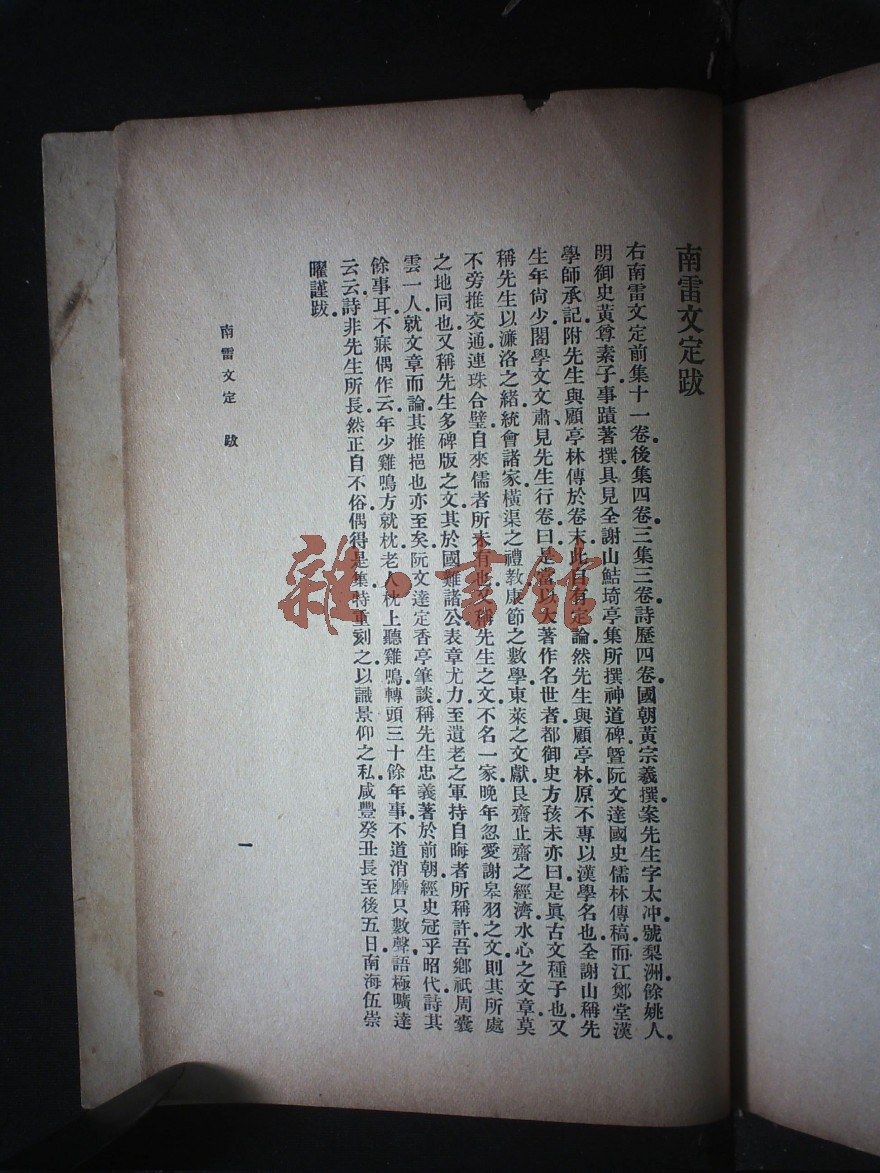 南雷文定跋
右南雷文定前集十一卷。後集四卷。三集三卷。詩歷四卷。國朝黃宗羲撰。案先生字太冲。號梨洲。餘姚人。
明御史黃尊素子。事蹟著撰。具見全謝山鮚琦亭集所撰神道碑。曁阮文達國史儒林傳稿。而江鄭堂漢
學師承記。附先生與顧亭林傳於卷末。此自有定論。然先生與顧亭林。原不專以漢學名也。全謝山稱先
生年尙少。閣學文文肅、見先生行卷。曰是當以大著作名世者。都御史方孩未亦曰是眞古文種子也。又
稱先生以濂洛之緒。統會諸家。橫渠之禮敎。康節之數學。東萊之文獻。艮齋止齋之經濟。水心之文章。莫
不旁推交通。連珠合璧。自來儒者所未有也。又稱先生之文。不名一家。晚年忽愛謝皋羽之文。則其所處
之地同也。又稱先生多碑版之文。其於國難諸公。表章尤力。至遺老之軍持自晦者。所稱許。吾鄕祇周囊
雲一人。就文章而論。其推挹也亦至矣。阮文達定香亭筆談。稱先生忠義著於前朝。經史冠乎昭代。詩其
餘事耳。不寐偶作云。年少雞鳴方就枕。老人枕上聽雞鳴。轉頭三十餘年事。不道消磨只數聲。語極曠達
云云。詩非先生所長。然正自不俗。偶得是集。特重刻之。以識景仰之私。咸豐癸丑長至後五日。南海伍崇
曜謹跋。
南雷文定 跋
一
雜·書館